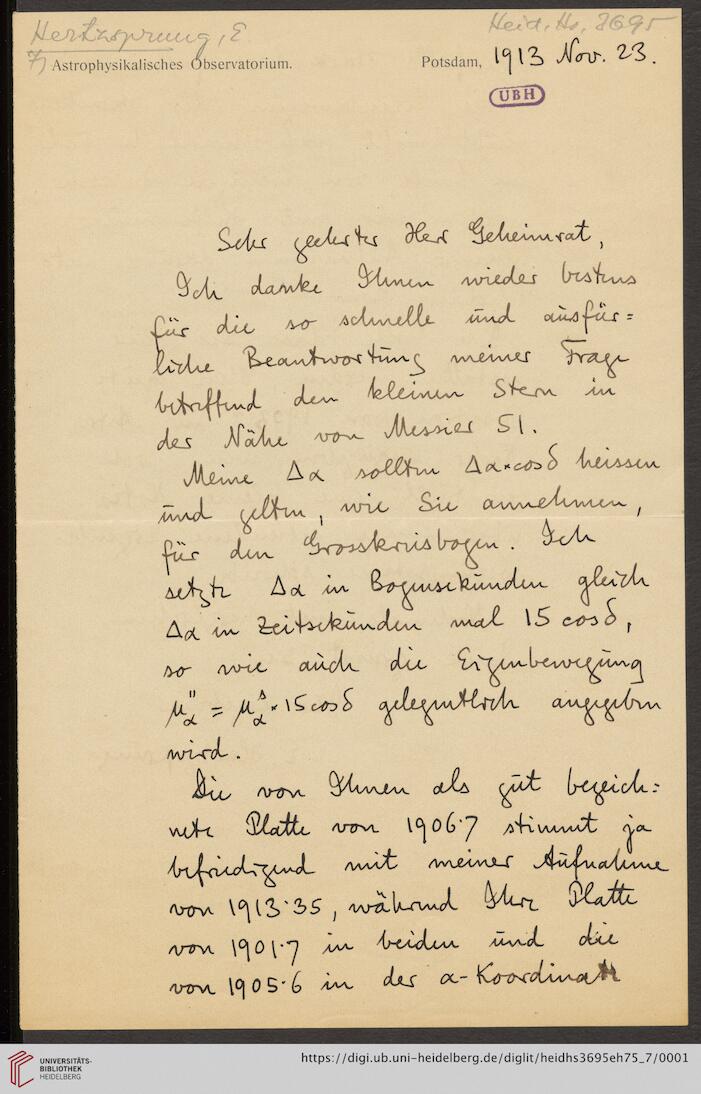 Hertzsprung, E.
Heid. Hs. 3695
7) Astrophysikalisches Observatorium.
Potsdam, 1913 Nov. 23.
UBH
Sehr geehrter Herr Geheimrat,
Ich danke Ihnen wieder bestens
für die so schnelle und ausfür=
liche Beantwortung meiner Frage
betreffend den kleinen Stern in
der Nähe von Messier 51.
Meine Δα sollten Δα×cosδ heissen
und gelten, wie Sie annehmen,
für den Grosskreisbogen. Ich
setzte Δα in Bogensekunden gleich
Δα in Zeitsekunden mal 15 cosδ,
so wie auch die Eigenbewegung
μ"α = μˢα×15cosδ gelegentlich angegeben
wird.
Die von Ihnen als gut bezeich=
nete Platte von 1906·7 stimmt ja
befriedigend mit meiner Aufnahme
von 1913·35, während Ihre Platte
von 1901·7 in beiden und die
von 1905·6 in der α-Koordinate
UNIVERSITÄTS-
BIBLIOTHEK
HEIDELBERG
https://digi.ub.uni-heidelberg.de/diglit/heidhs3695eh75_7/0001